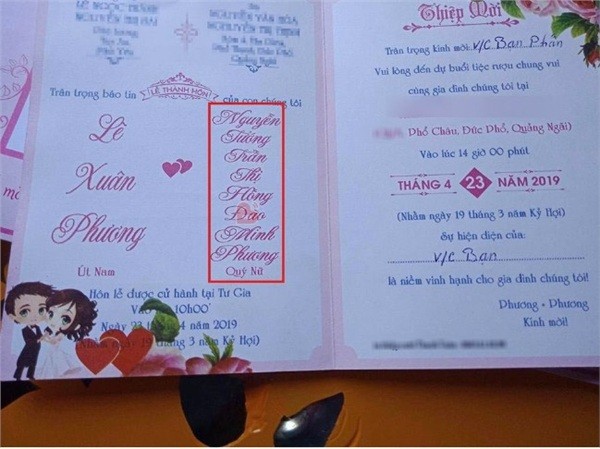 LÊ NGỌC
NGUYỄN THỊ
NGUYỄN VĂN HÒA
NGUYỄN THỊ THỊNH
Quảng Ngãi
Trân trọng báo tin
LỄ THÀNH HÔN
của con chúng tôi
Lê
Xuân
Phương
Út Nam
Nguyễn
Tường
Trần
Thị
Hồng
Đào
Minh
Phương
Quý Nữ
Hôn lễ được cử hành tại Tư Gia
10h00'
Ngày 23 4 năm 2019
ngày 19 tháng 3 năm Kỷ Hợi)
Thiệp Mời
Trân trọng kính mời: V/C Bạn Phấn
Vui lòng đến dự buổi tiệc rượu chung vui
cùng gia đình chúng tôi tại
Phổ Châu, Đức Phổ, Quảng Ngãi
Vào lúc 14 giờ 00 phút
THÁNG 4 23 NĂM 2019
(Nhằm ngày 19 tháng 3 năm Kỷ Hợi)
Sự hiện diện của
V/C Bạn
là niềm vinh hạnh cho gia đình chúng tôi!
Phương + Phương
Kính mời!